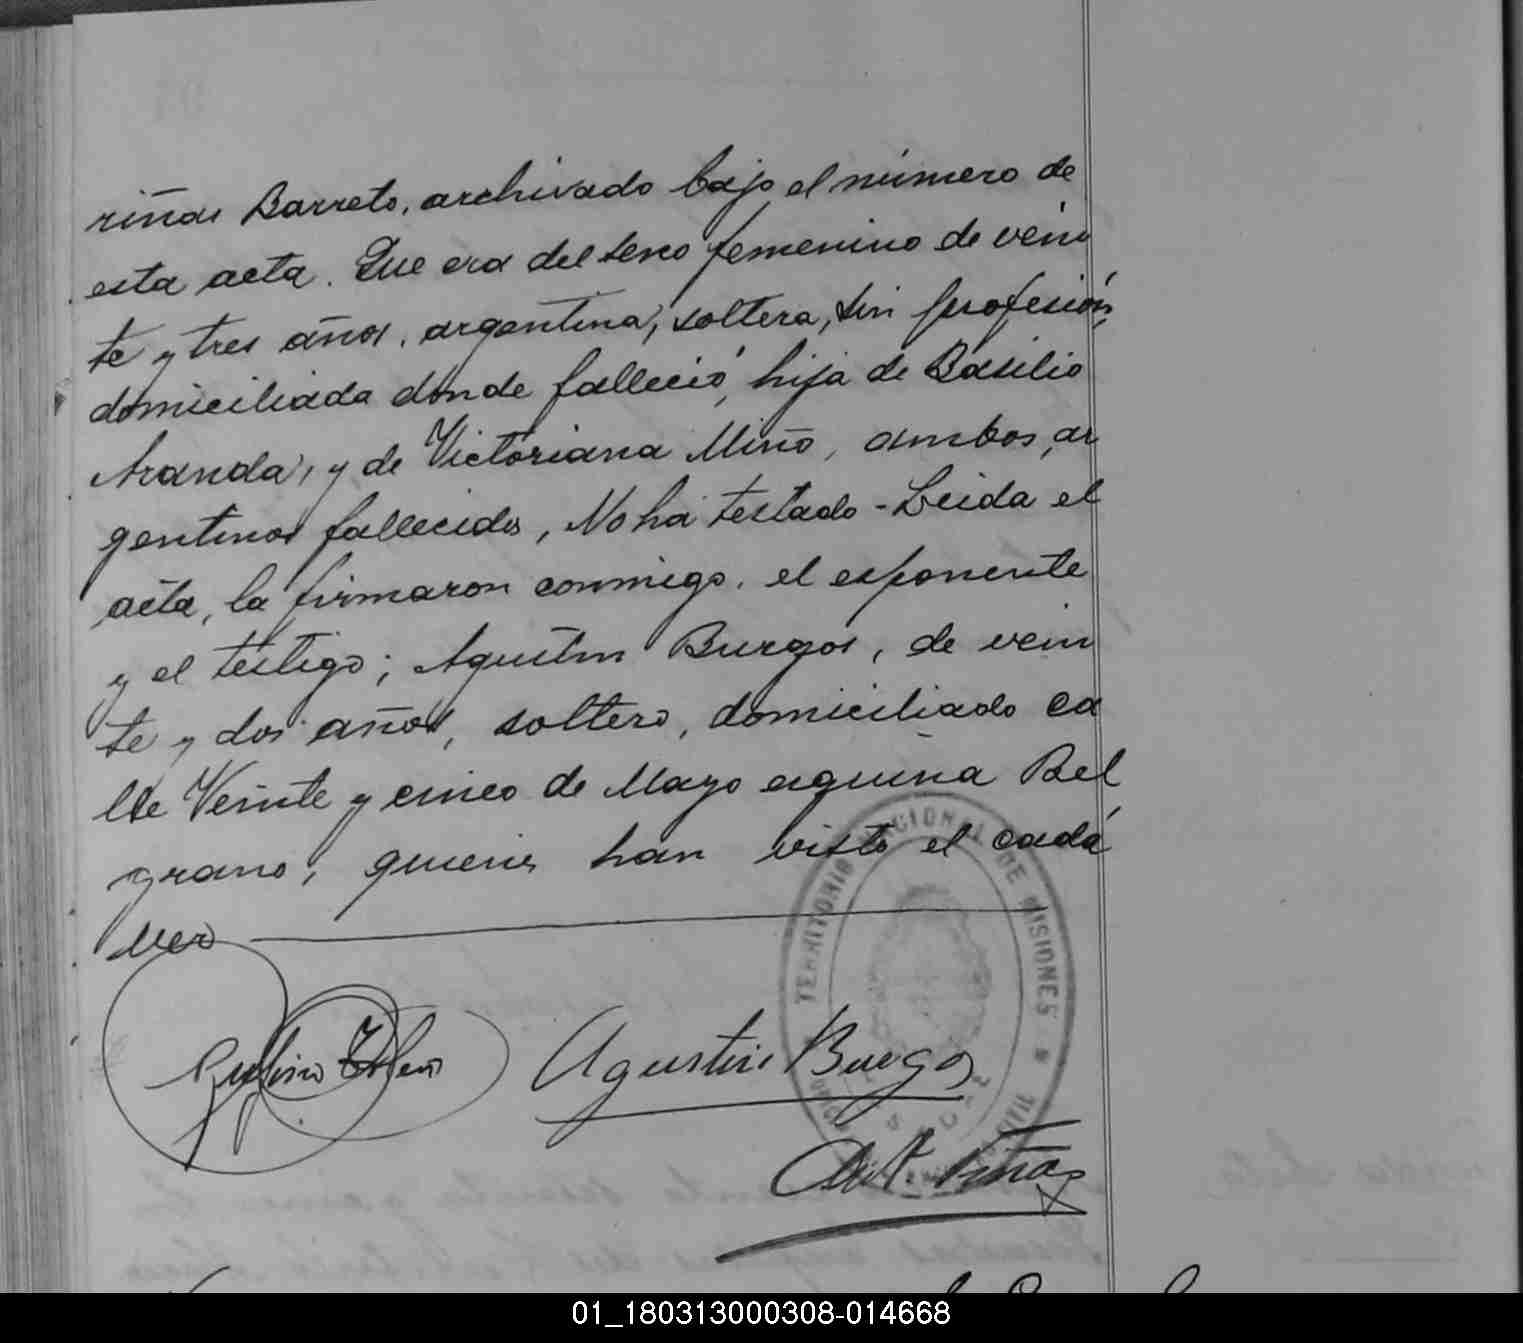 riñas Barreto, archivado bajo el número de
esta acta. Que era del sexo femenino de vein
te y tres años, argentina, soltera, sin profesión,
domiciliada donde falleció, hija de Basilio
Aranda, y de Victoriana Miño, ambos, ar
gentinos fallecidos, No ha testado - Leida el
acta, la firmaron conmigo, el exponente
y el testigo; Agustin Burgos, de vein
te y dos años, soltero, domiciliado ca
lle Veinte y cinco de Mayo esquina Bel
grano, quienes han visto el cadá
ver
Agustin Burgos
TERRITORIO NACIONAL DE MISIONES
CIVIL
01_180313000308-014668